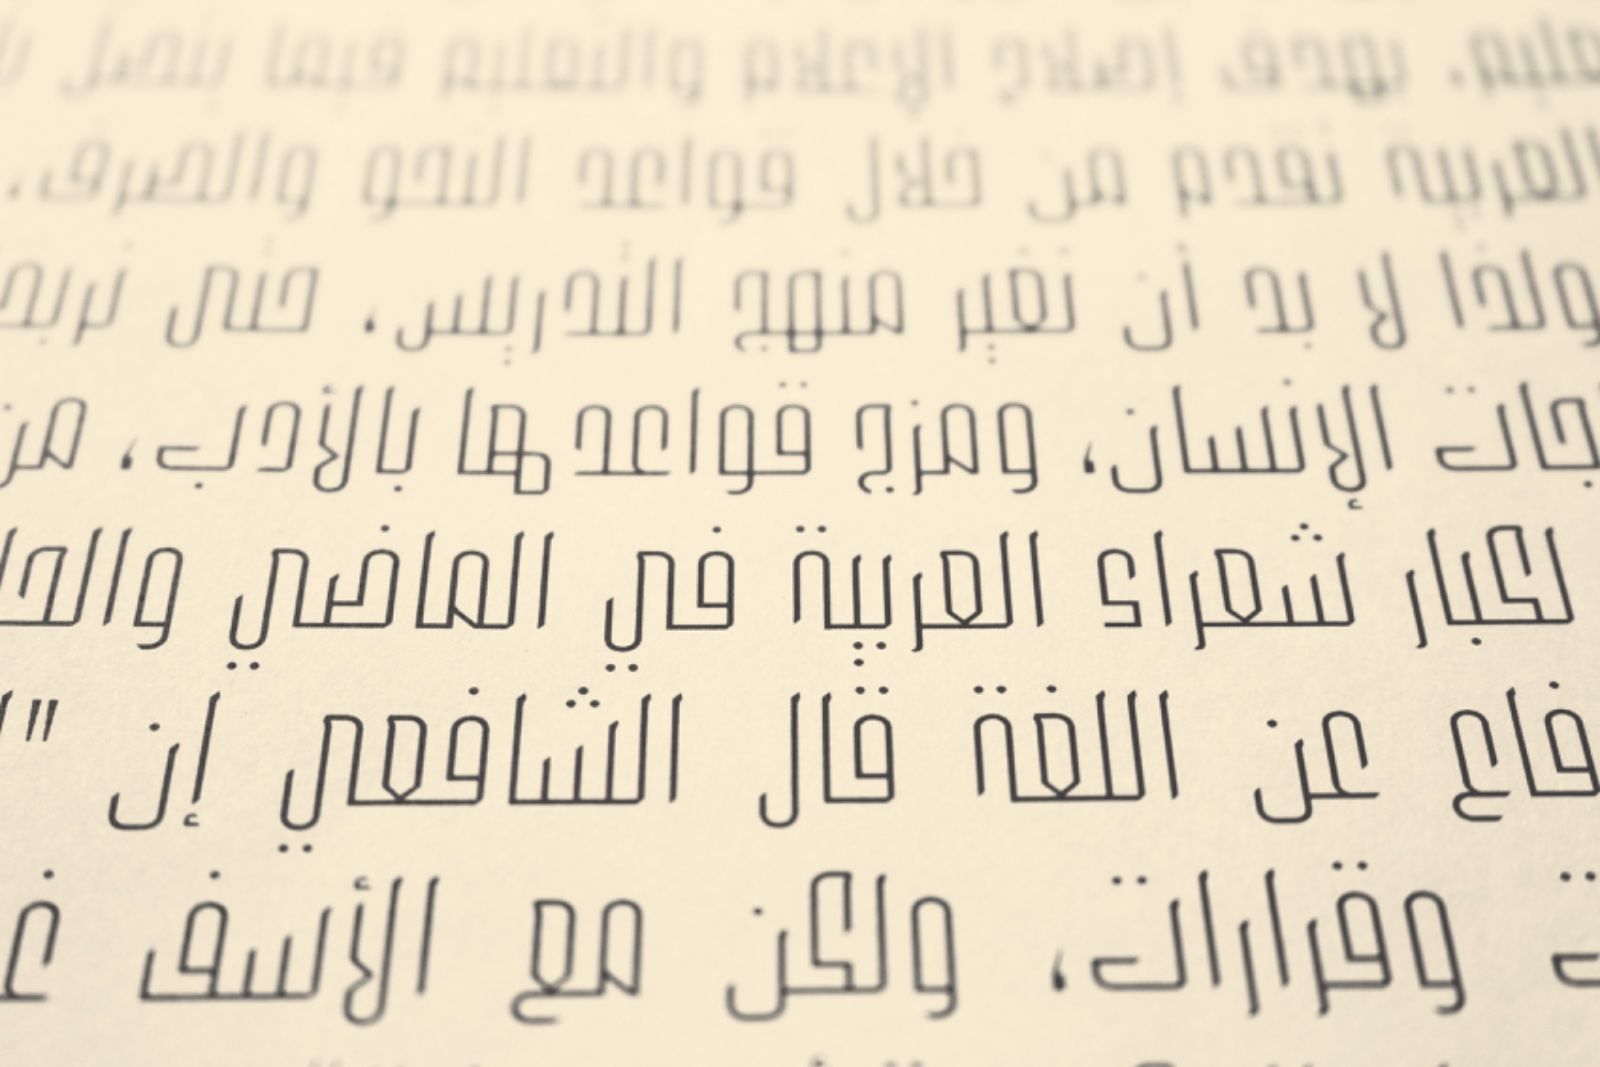 عليم. بهدف إصلاح الإعلام والتعليم فيما يتصل
العربية تقدم من خلال قواعد النحو والصرف.
ولذا لا بد أن نغير منهج التدريس، حتى نربط
جات الإنسان، ومزج قواعدها بالأدب، من
لكبار شعراء العربية في الماضي والحا
فاع عن اللغة قال الشافعي إن "ا
ت وقرارات، ولكن مع الأسف